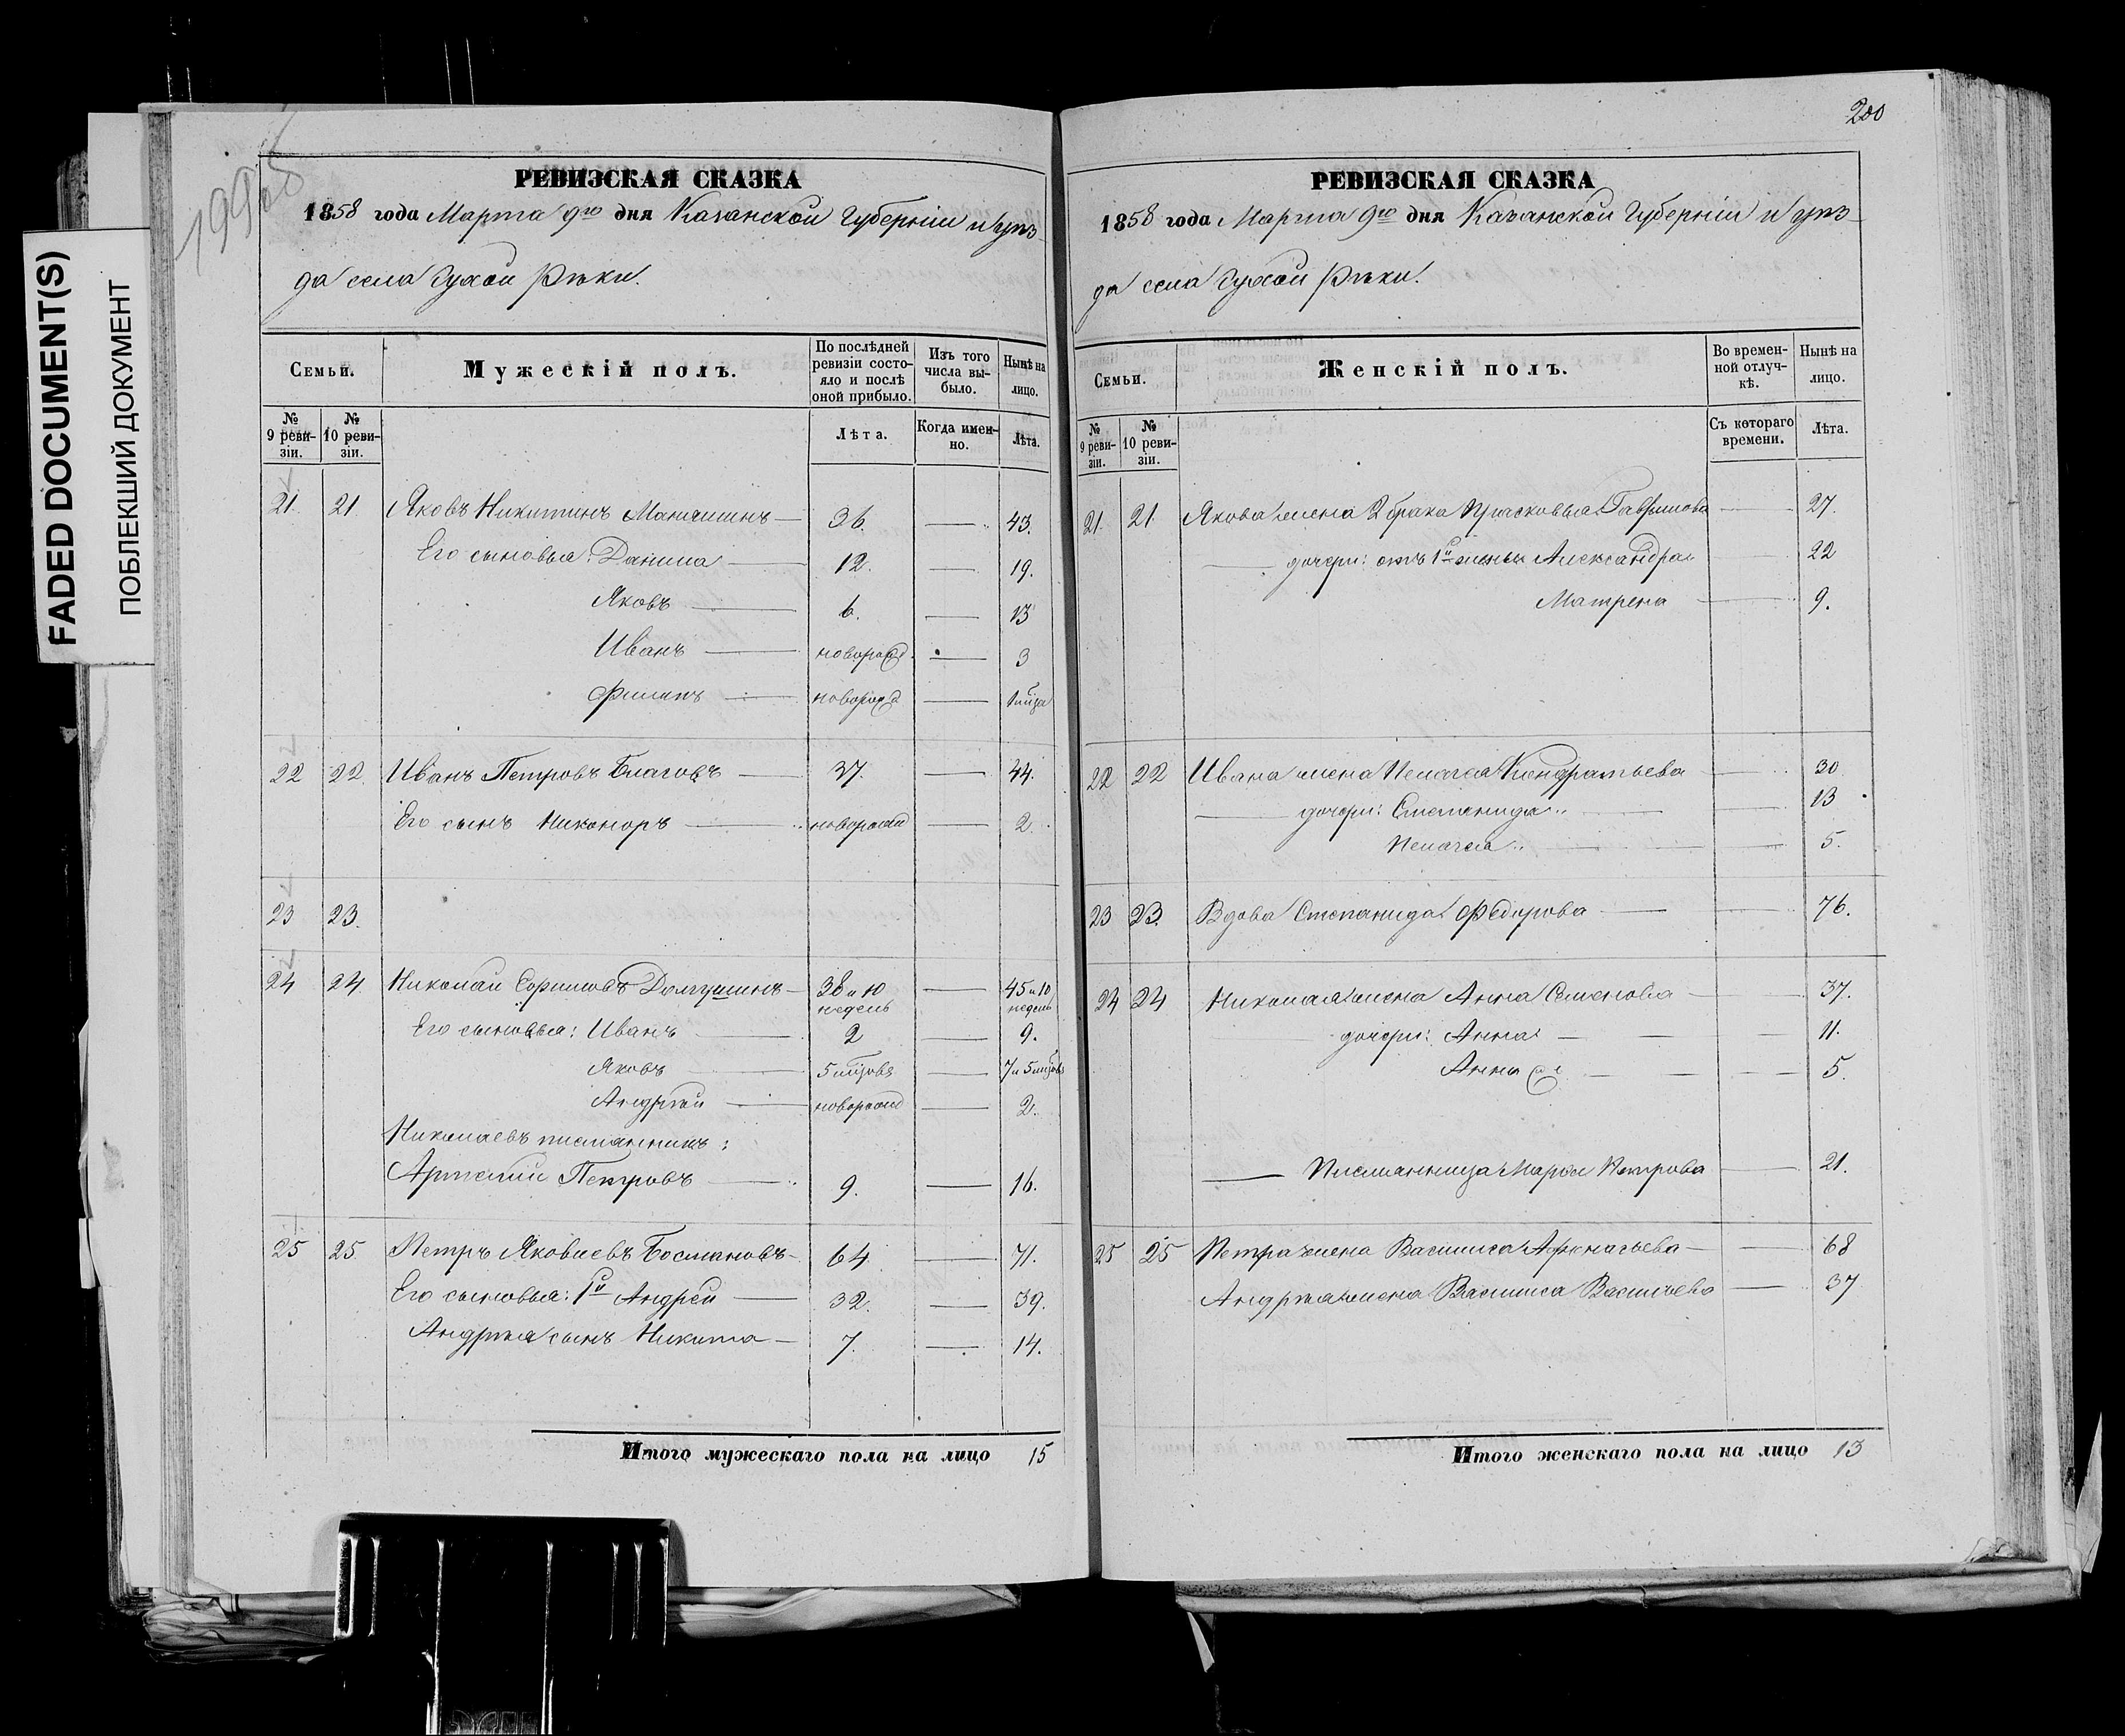 FADED DOCUMENT(S)
ПОБЛЕКШИЙ ДОКУМЕНТ
199об
РЕВИЗСКАЯ СКАЗКА
1858 года Марта 9го дня Казанской Губерніи и уѣз-
да села Сухой Рѣки.
Семьи.
Мужескій полъ.
По послѣдней ревизіи состо-яло и послѣ оной прибыло.
Изъ того числа вы-было.
Нынѣ на лицо.
№ 9 реви-зіи.
№ 10 реви-зіи.
Лѣта.
Когда имен-но.
Лѣта.
21. 21. Яковъ Никитинъ — 36. — 43.
Его сыновья: Данила — 12. — 19.
Яковъ — 6. — 13
Иванъ — новорожд. — 3
Филипъ — новорожд — 1 мѣца
22 22. Иванъ Петровъ Благовъ — 37. — 44.
Его сынъ Никоноръ — новорожд — 2.
23 23.
24 24. Николай Долгушинъ — 38 и 10 недель — 45 и 10 недель
Его сыновья: Иванъ — 2 — 9.
Яковъ — 5 мѣцовъ — 7 и 5 мѣцовъ
Андрей — новорожд — 2.
Николаевъ племянникъ:
Артемій Петровъ — 9. — 16.
25 25. Петръ Яковлевъ Босмановъ — 64 — 71.
Его сыновья: 1й Андрей — 32. — 39.
Андрея сынъ Никита — 7. — 14.
Итого мужескаго пола на лицо 15
200
РЕВИЗСКАЯ СКАЗКА
1858 года Марта 9го дня Казанской Губерніи и уѣз-
да села Сухой Рѣки.
Семьи.
Женскій полъ.
Во времен-ной отлуч-кѣ.
Нынѣ на лицо.
№ 9 реви-зіи.
№ 10 реви-зіи.
Съ котораго времени.
Лѣта.
21. 21. Якова жена 2 брака Прасковья Гаврилова — 27.
— дочери: отъ 1й жены Александра — 22
Матрена — 9.
22 22 Ивана жена Пелагея Кондратьева — 30
— дочери: Степанида — 13
Пелагея — 5.
23 23. Вдова Степанида Федорова — 76.
24 24 Николая жена Анна Семенова — 37.
— дочери: Анна — 11.
Анна — 5.
— Племянница Марья Петрова — 21.
25 25 Петра жена Василиса Афонасьева — 68
Андрея жена Василиса Васильева — 37
Итого женскаго пола на лицо 13